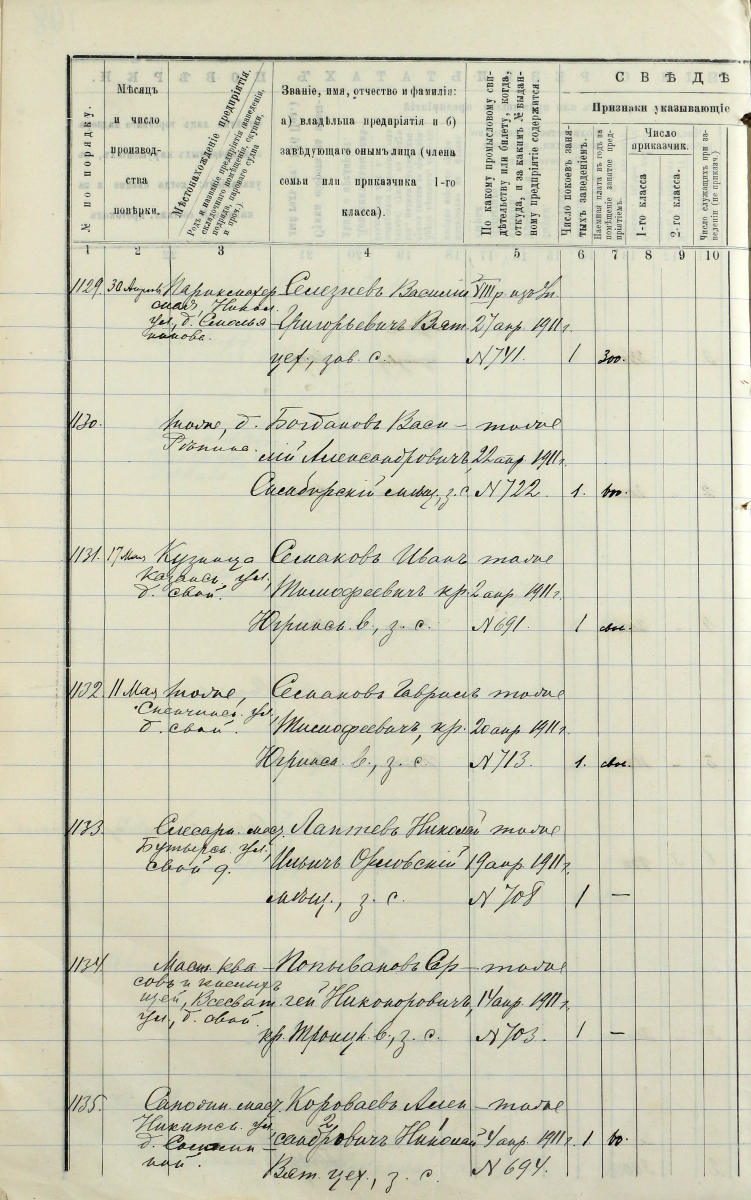 СВѢДѢ
Признаки указывающіе
№ по порядку.
Мѣсяцъ
и число
производ-
ства
повѣрки.
Мѣстонахожденіе предпріятія.
Родъ и названіе предпріятія (заведенія,
складочнаго помѣщенія, скупки,
подряда, парового судна
и проч.)
Званіе, имя, отчество и фамилія:
а) владѣльца предпріятія и б)
завѣдующаго онымъ лица (члена
семьи или приказчика 1-го
класса).
По какому промысловому сви-
дѣтельству или билету, когда,
откуда, и за какимъ № выдан-
ному предпріятіе содержится.
Число покоевъ заня-
тыхъ заведеніемъ.
Наемная плата въ годъ за
помѣщеніе занятое пред-
пріятіемъ.
Число
приказчик.
1-го класса
2-го класса.
Число служащихъ при за-
веденіи (не приказч.)
1 2 3 4 5 6 7 8 9 10
1129. 30 Апрѣля Парикмахер. Селезневъ Василій VIII р. изъ
маст., Никол.
ул., д. Смолья- Григорьевичъ Вят. 27 апр. 1911 г.
нинова.
цех., зав. с. № 741. 1 300.
1130. тоже, д. Богдановъ Васи- тоже
Рѣпина. лій Александровичъ, 22 апр. 1911 г.
Симбирскій мѣщ., з. с. № 722. 1.
1131. 17 Мая Кузница Семаковъ Иванъ тоже
Казанск. ул., Тимофеевичъ кр. 2 апр. 1911 г.
д. свой.
Югринск. в., з. с. № 691. 1 свое.
1132. 11 Мая тоже, Семаковъ Гаврилъ тоже
Спенчинск. ул., Тимофеевичъ, кр. 20 апр. 1911 г.
д. свой.
Югринск. в., з. с. № 713. 1. свое.
1133 Слесарн. маст. Лаптевъ Николай тоже
Бутырск. ул., Ильичъ Орловскій 19 апр. 1911 г.
свой д.
мѣщ., з. с. № 708 1 —
1134. Маст. ква- Попывановъ Сер- тоже
совъ и кислыхъ
щей, Всесвят. гей Никоноровичъ, 14 апр. 1911 г.
ул., д. свой.
кр. Троицк. в., з. с. № 703. 1 —
1135. Сапожн. маст. Короваевъ Алек- тоже
Никитск. ул., сандровичъ Николай 4 апр. 1911 г. 1
д.
Вят. цех., з. с. № 694.